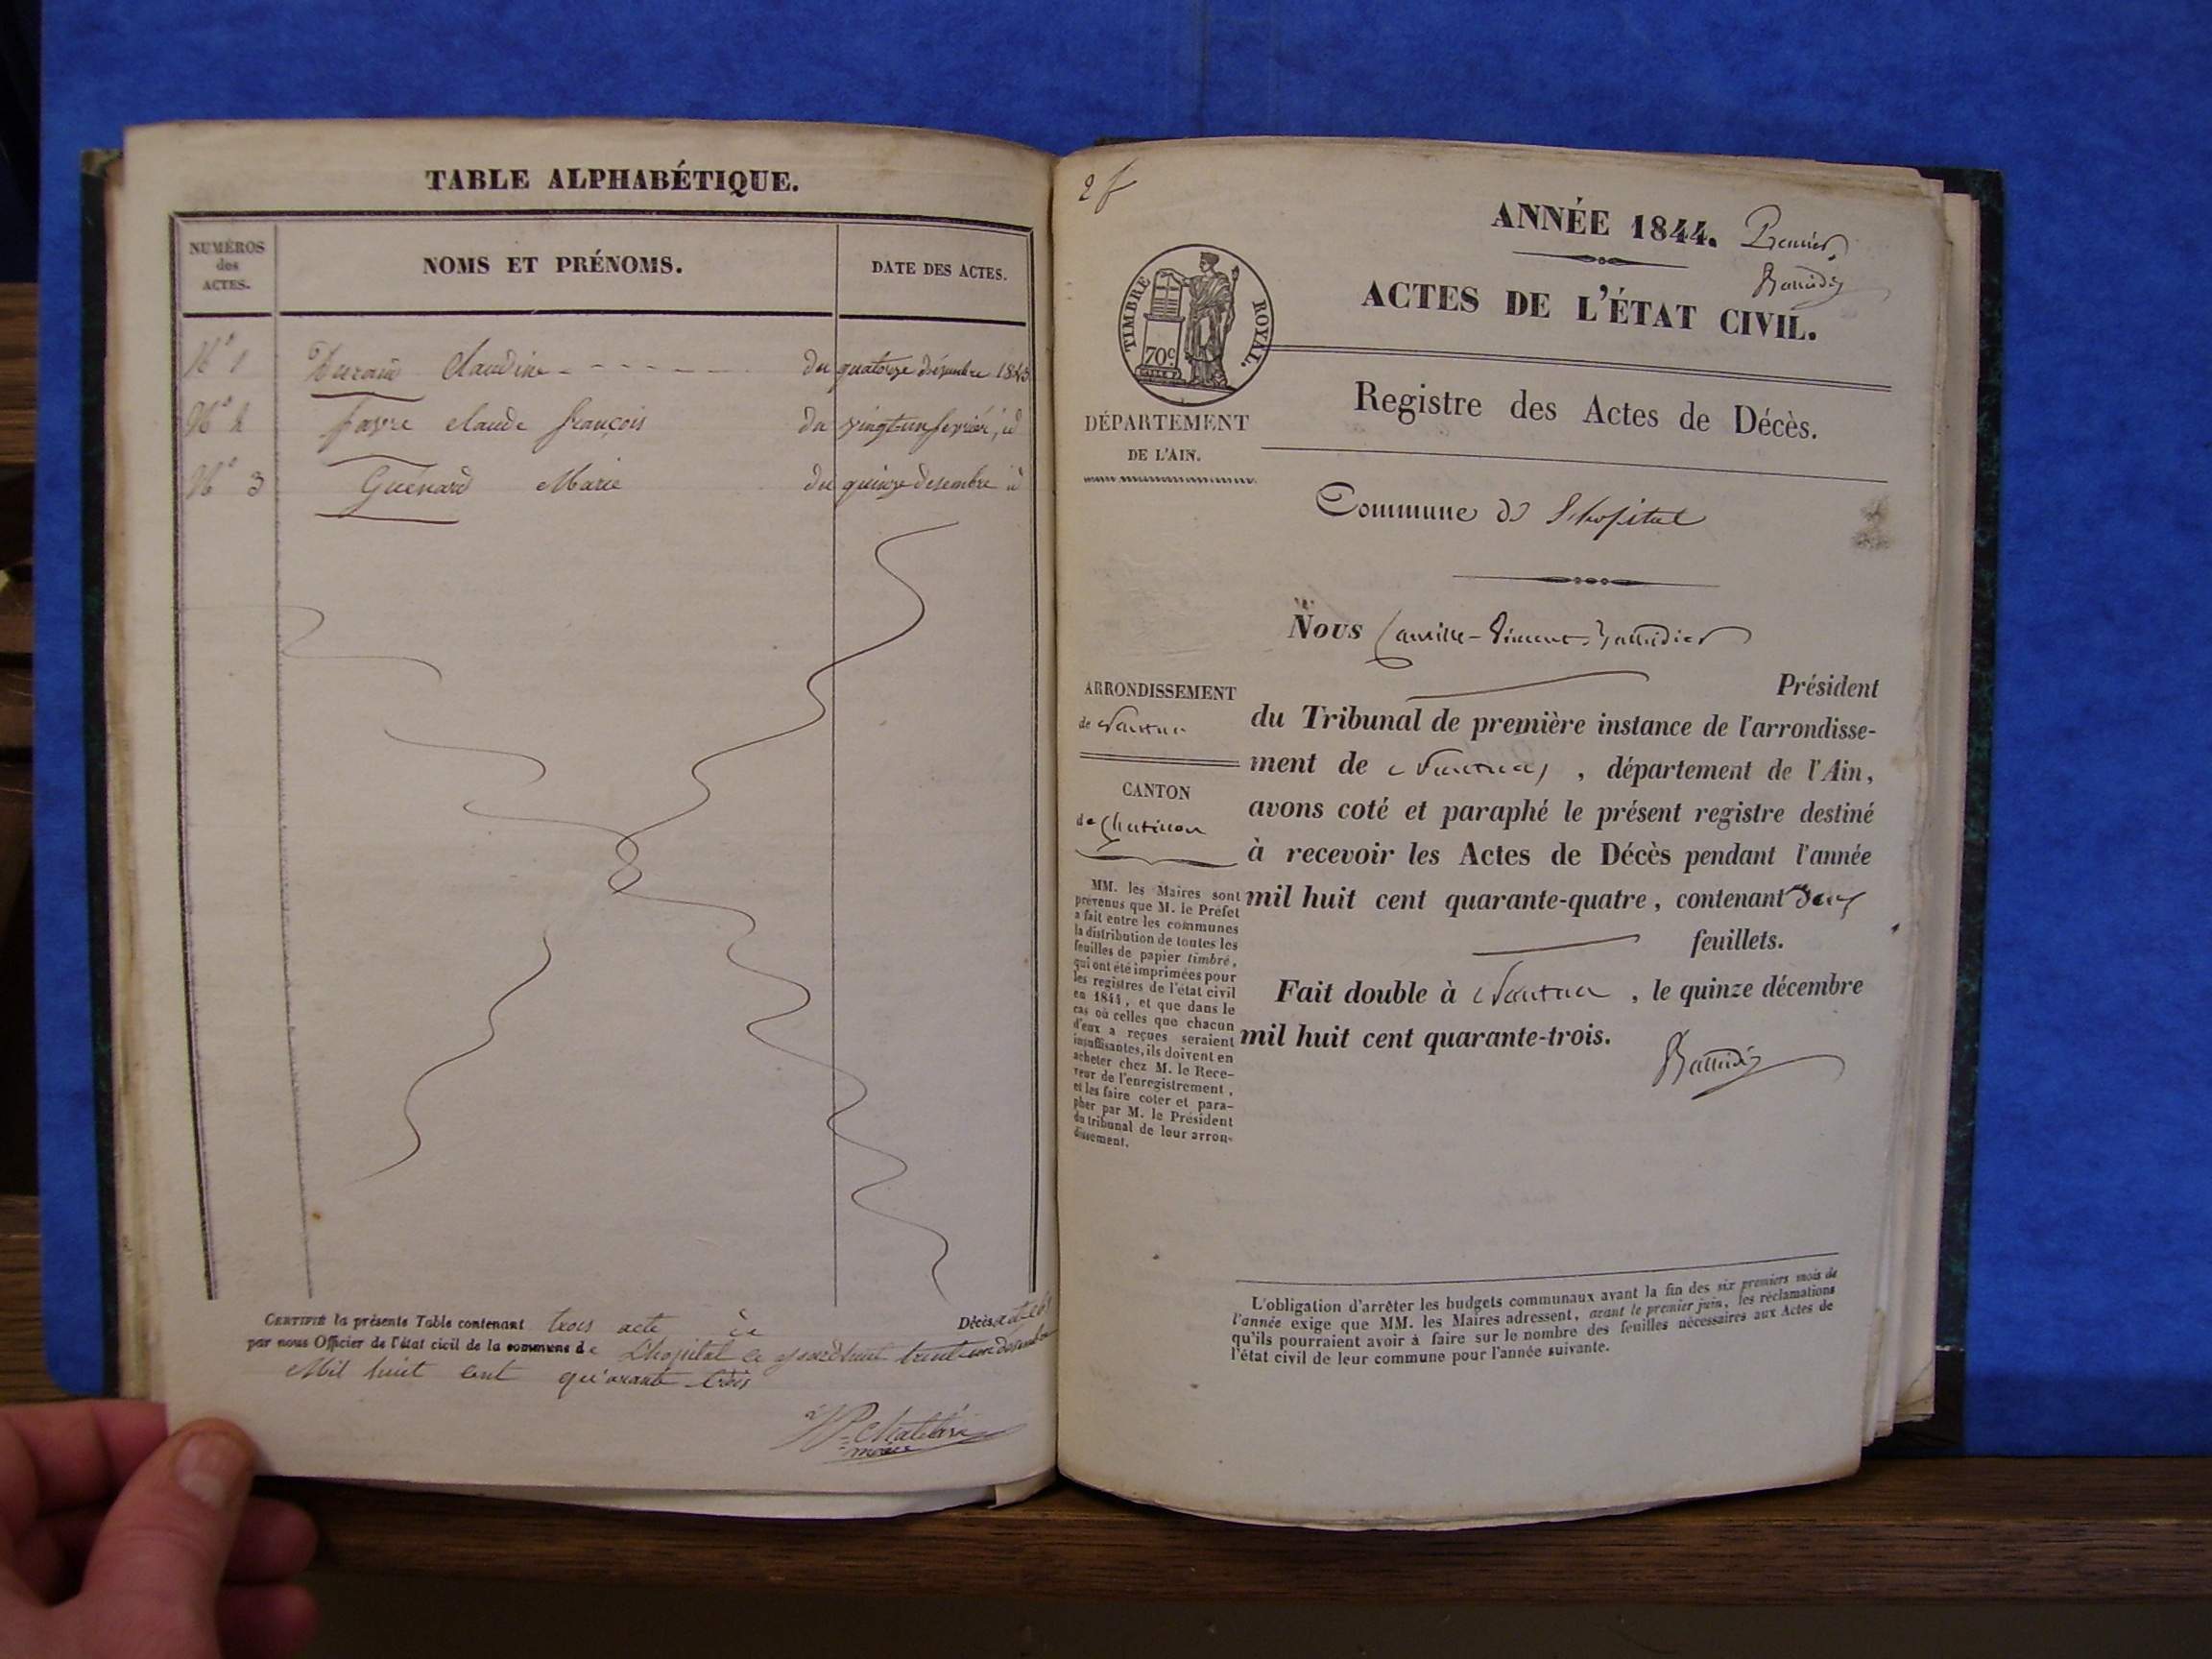 TABLE ALPHABÉTIQUE.
NUMÉROS
des
ACTES.
NOMS ET PRÉNOMS.
DATE DES ACTES.
N° 1 Durand Claudine du quatorze décembre 1843
N° 2 favre claude françois du vingt un fevrier, id
N° 3 Guénard Marie du quinze desembre id
CERTIFIÉ la présente Table contenant trois acte de Décès
par nous Officier de l'état civil de la commune de L'hopital ce trente un
Mil huit cent quarante trois
maire
2 f
ANNÉE 1844. Premier
ACTES DE L'ÉTAT CIVIL.
TIMBRE ROYAL.
70c
Registre des Actes de Décès.
DÉPARTEMENT
DE L'AIN.
Commune de L'hopital
Nous Camille-Vincent
Président
ARRONDISSEMENT
de Nantua
du Tribunal de première instance de l'arrondisse-
ment de Nantua, département de l'Ain,
CANTON
de Chatillon
avons coté et paraphé le présent registre destiné
à recevoir les Actes de Décès pendant l'année
mil huit cent quarante-quatre, contenant deux
feuillets.
Fait double à Nantua, le quinze décembre
mil huit cent quarante-trois.
MM. les Maires sont
prévenus que M. le Préfet
a fait entre les communes
la distribution de toutes les
feuilles de papier timbré,
qui ont été imprimées pour
les registres de l'état civil
en 1844, et que dans le
cas où celles que chacun
d'eux a reçues seraient
insuffisantes, ils doivent en
acheter chez M. le Rece-
veur de l'enregistrement,
et les faire coter et para-
pher par M. le Président
du tribunal de leur arron-
dissement.
L'obligation d'arrêter les budgets communaux avant la fin des six premiers mois de
l'année exige que MM. les Maires adressent, avant le premier juin, les réclamations
qu'ils pourraient avoir à faire sur le nombre des feuilles nécessaires aux Actes de
l'état civil de leur commune pour l'année suivante.